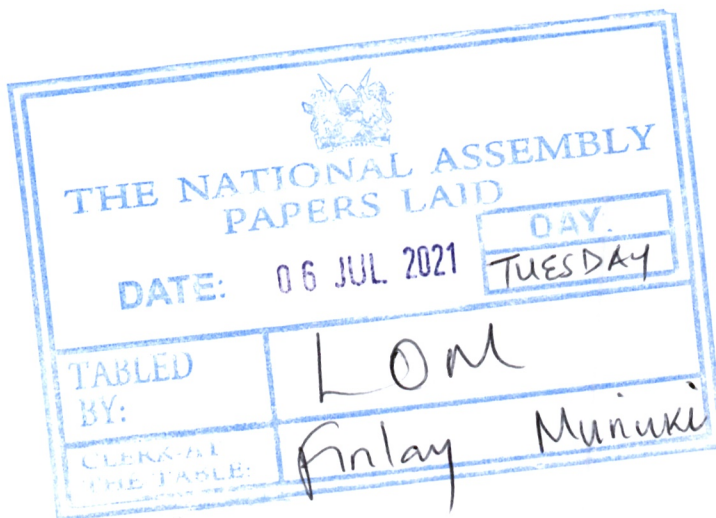 THE NATIONAL ASSEMBLY
PAPERS LAID
DATE: 06 JUL 2021
DAY.
TUESDAY
TABLED
BY:
LOM
CLERK-AT
THE TABLE:
Finlay Muriuki